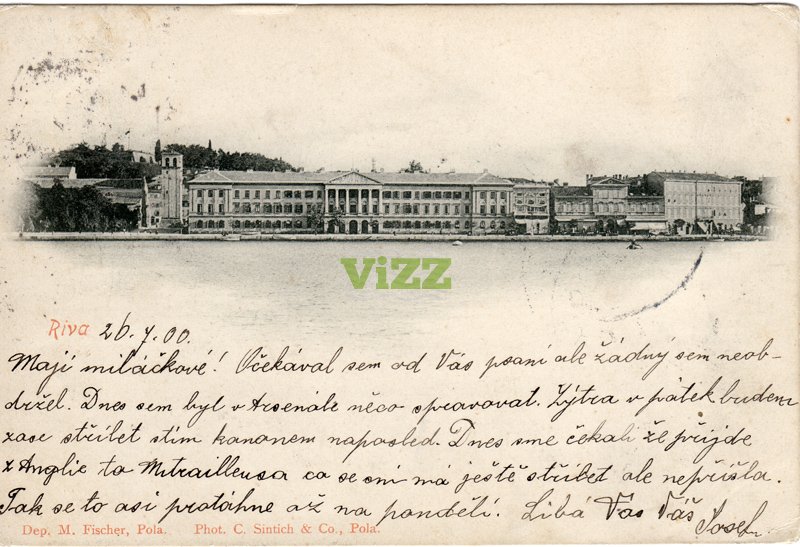 ViZZ
Riva 26.7.00.
Mají miláčkové! Očekával sem od Vás psaní ale žádný sem neob-
držel. Dnes sem byl v Arsenále něco spravovat. Zýtra v pátek budem
zase střílet stím kanonem naposled. Dnes sme čekali že přijde
z Anglie ta Mitrailleusa co se sní má ještě střílet ale nepřišla.
Tak se to asi protáhne až na pondělí. Líbá Vás Váš Josef.
Dep. M. Fischer, Pola. Phot. C. Sintich & Co., Pola.